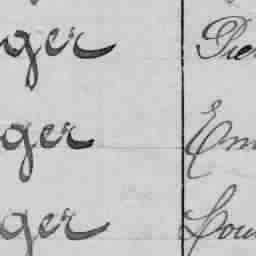 ger Pier
ger Em
ger Lou